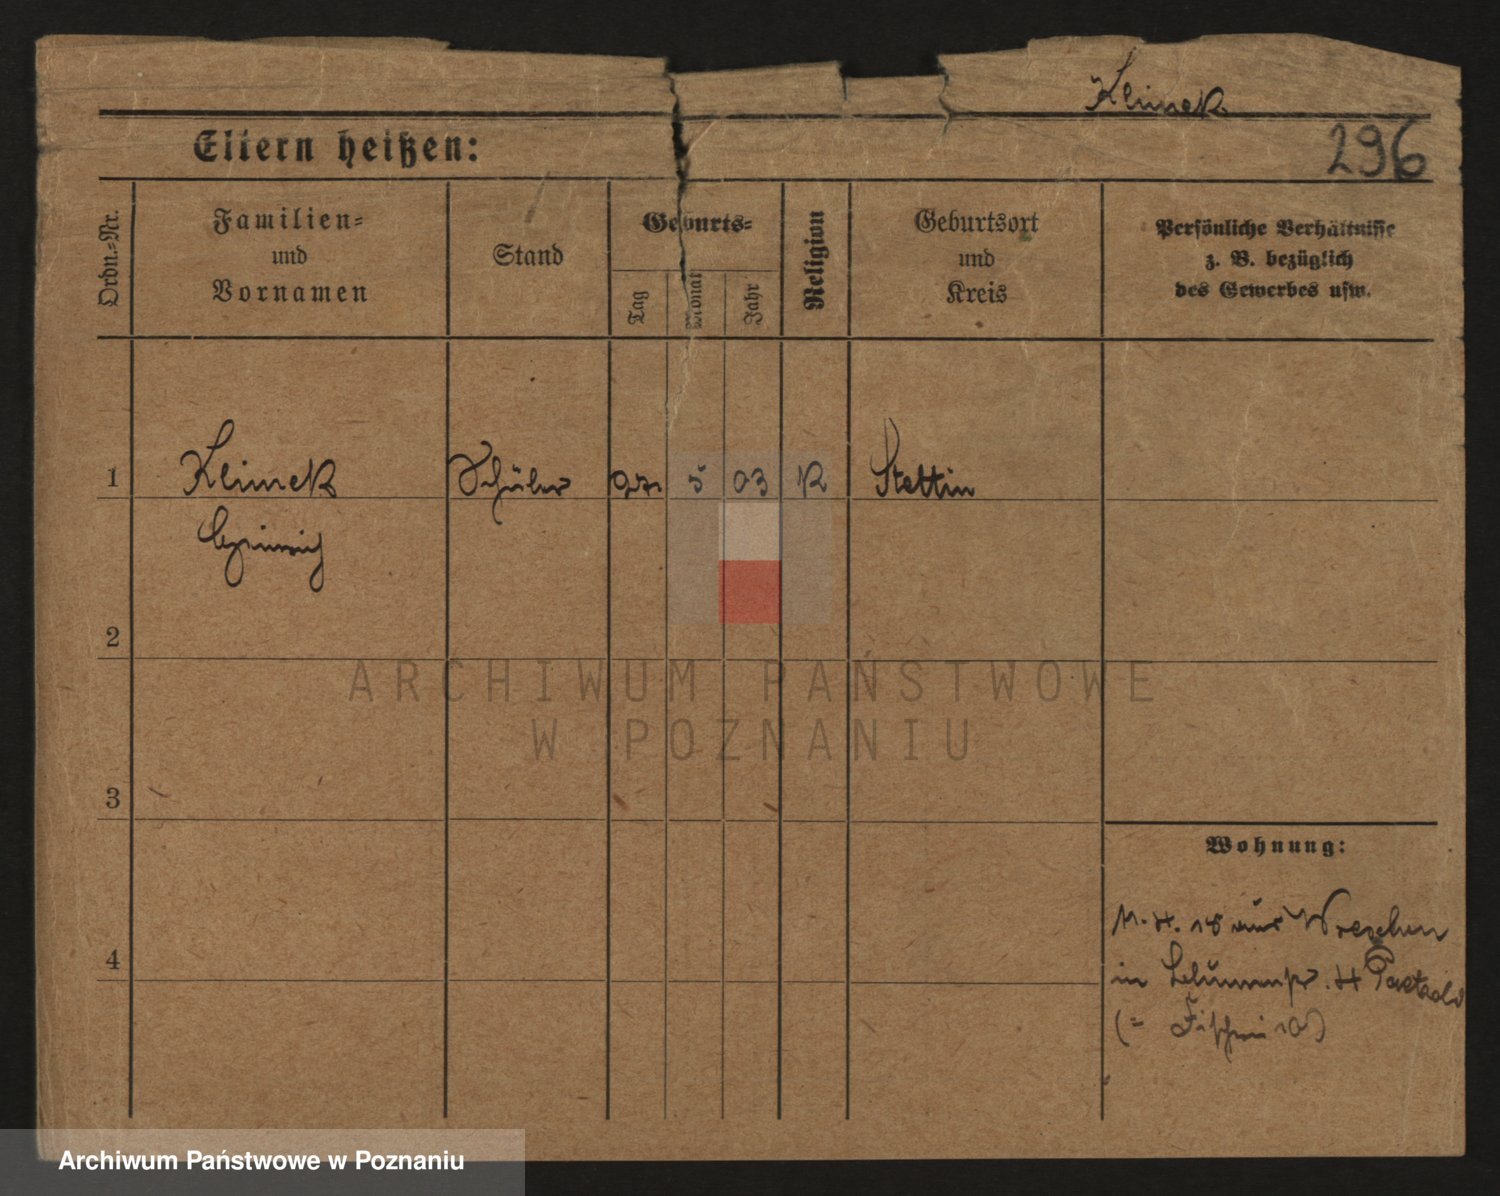 Klimek
296
Eltern heißen:
Ordn.-Nr.
Familien-
und
Vornamen
Stand
Geburts-
Tag
Monat
Jahr
Religion
Geburtsort
und
Kreis
Persönliche Verhältnisse
z. B. bezüglich
des Gewerbes usw.
1 Klimek Schüler 5 03 K Stettin
Heinrich
2
3
4
Wohnung:
18 aus Wreschen
in Blumenstr. 4 Paetzold
ARCHIWUM PAŃSTWOWE
W POZNANIU
Archiwum Państwowe w Poznaniu